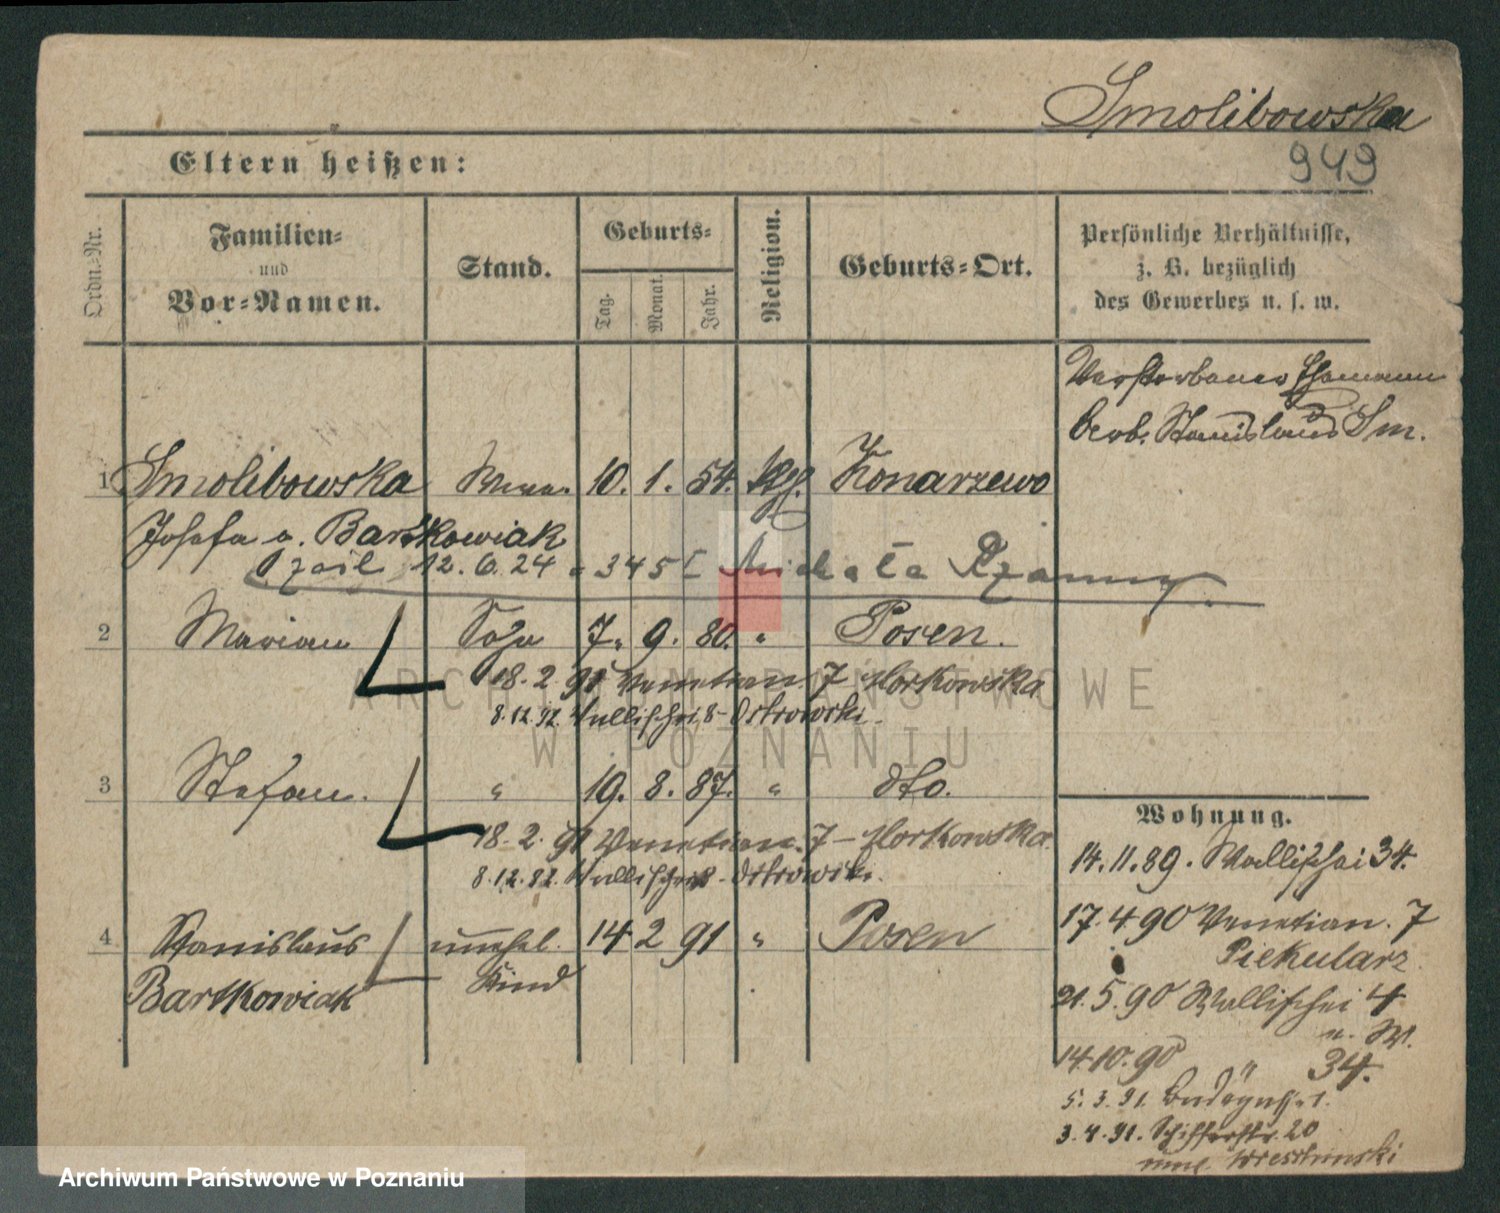 Smolibowska
949
Eltern heißen:
Ordn.-Nr.
Familien-
und
Vor-Namen.
Stand.
Geburts-
Tag.
Monat.
Jahr.
Religion.
Geburts-Ort.
Persönliche Verhältnisse,
z. B. bezüglich
des Gewerbes u. s. w.
Verstorbener Ehemann
Stanislaus Sm.
1 Smolibowska 10. 1. 54. Konarzewo
Josefa Bartkowiak
12.6.24 345
2 Marian Sohn 7. 9. 80. " Posen.
18. 2. 91 Venetian. 7 Horkowska
8.12.92. Wallischei 8 - Ostrowski.
3 Stefan. " 19. 8. 87. " dto.
18. 2. 91 Venetian. 7 - Horkowska
8.12.92. Wallischei 8 - Ostrowski.
4 Stanislaus unehel. 14 2 91 " Posen
Bartkowiak Kind
Wohnung.
14.11.89. Wallischei 34.
17.4 90 Venetian. 7
Piekularz
21.5.90 Wallischei 4
14.10.90 " 34.
5.3.91.
3.4.91. Schifferstr. 20
ARCHIWUM PAŃSTWOWE
W POZNANIU
Archiwum Państwowe w Poznaniu